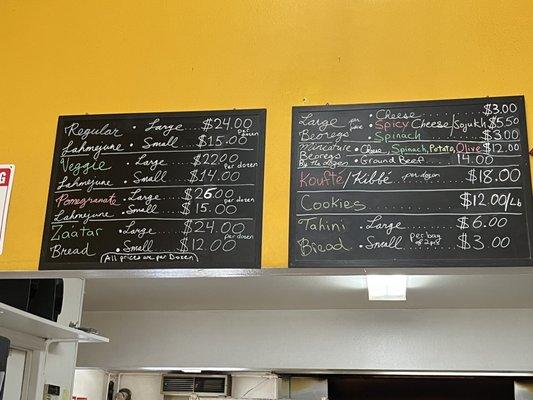 Regular • Large ... $24.00
Lahmejune • Small ... $15.00 per dozen
Veggie • Large ... $22.00
Lahmejune • Small ... $14.00 per dozen
Pomegranate • Large ... $26.00
Lahmejune • Small ... $15.00 per dozen
Zaatar • Large ... $24.00
Bread • Small ... $12.00 per dozen
(All prices are per Dozen)
Large per piece • Cheese ... $3.00
Beoregs • Spicy Cheese/Sojukh $5.50
• Spinach ... $3.00
Miniature • Cheese, Spinach, Potato, Olive $12.00
Beoregs • Ground Beef ... 14.00
By the dozen
Koufté/Kibbé per dozen ... $18.00
Cookies ... $12.00/Lb
Tahini • Large ... $6.00
Bread • Small per bag ... $3.00